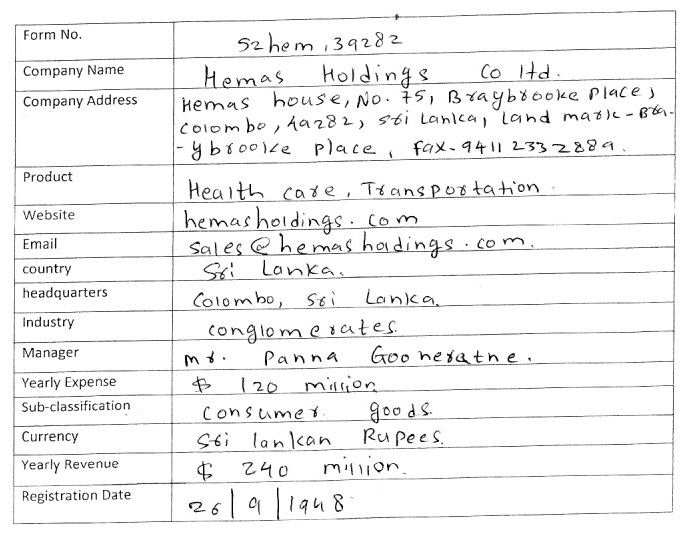 Form No. 52hem,39282
Company Name Hemas Holdings Co ltd.
Company Address Hemas house, No. 75, Braybrooke Place,
Colombo, 49282, Sri Lanka, Land mark - Bra-
-ybrooke place, fax- 9411 2332889.
Product Health care, Transportation.
Website hemasholdings.com
Email sales@hemashodings.com.
country Sri Lanka.
headquarters Colombo, Sri Lanka.
Industry conglomerates.
Manager mr. Panna Gooneratne.
Yearly Expense $ 120 million
Sub-classification consumer goods.
Currency Sri lankan Rupees.
Yearly Revenue $ 240 million.
Registration Date 26/9/1948